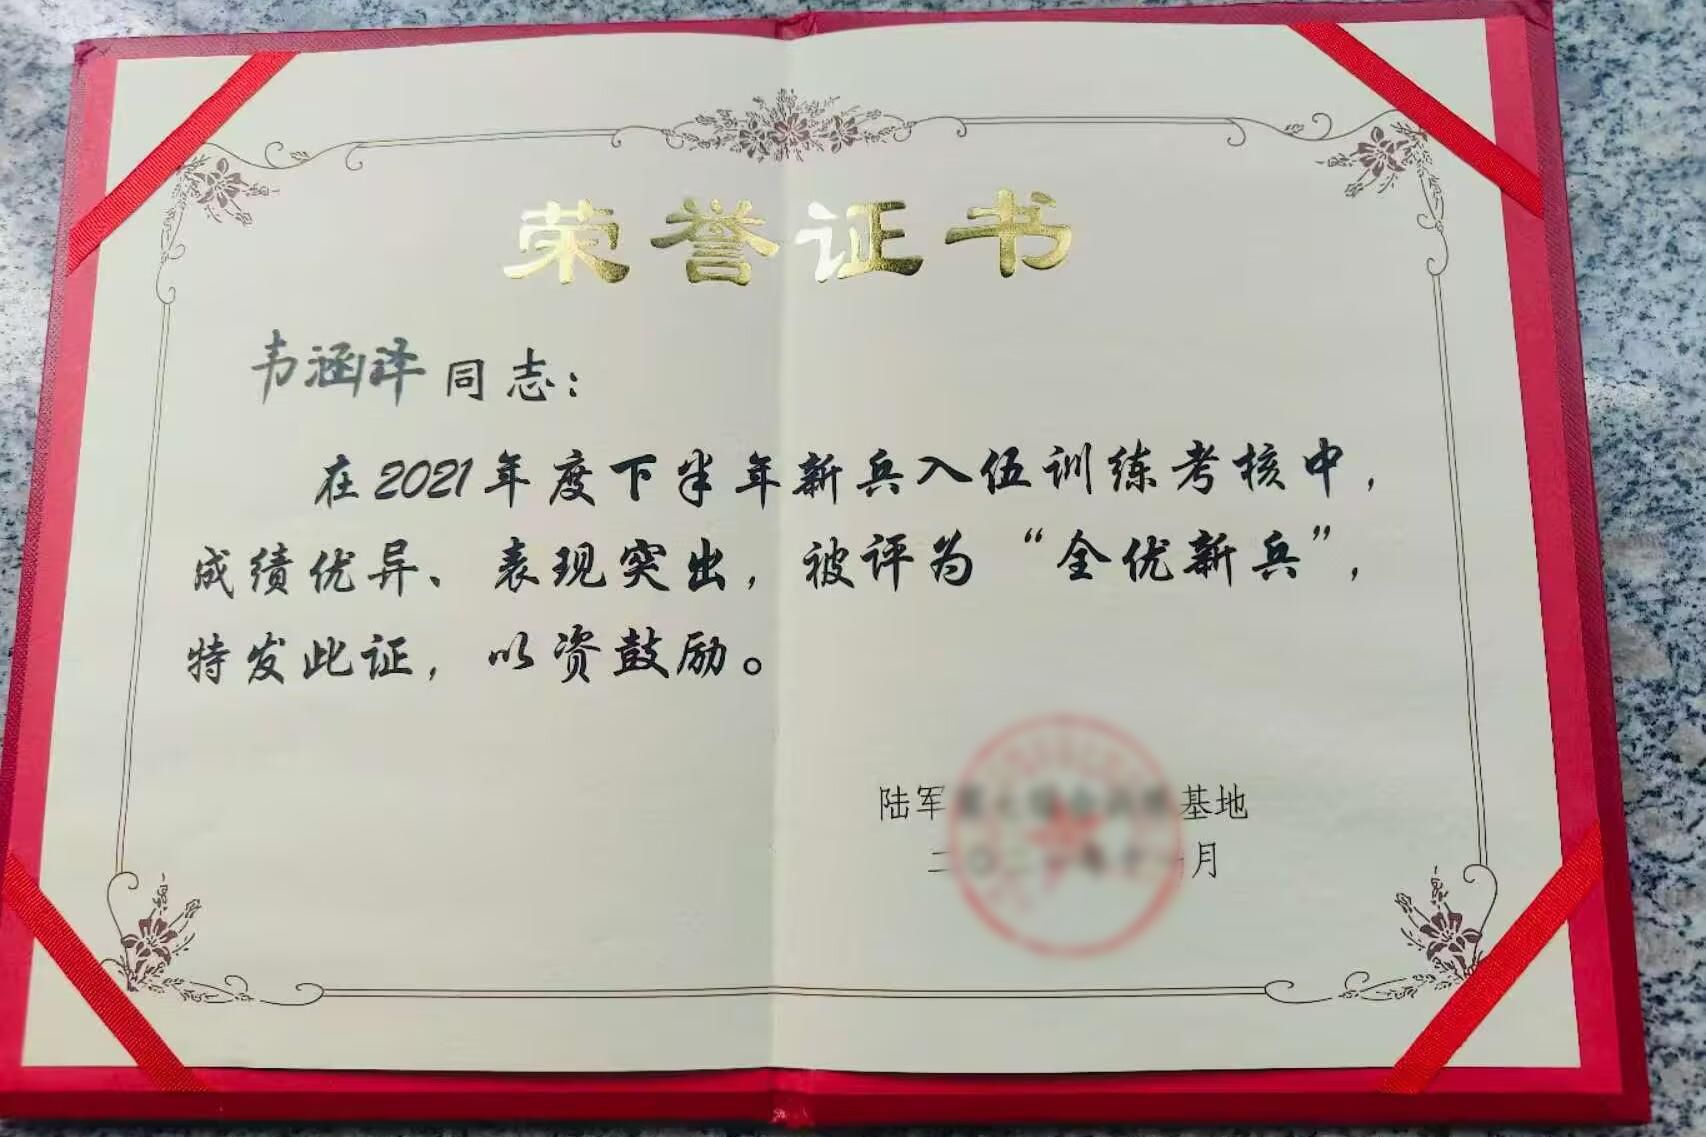 荣誉证书
韦涵泽同志：
在2021年度下半年新兵入伍训练考核中，
成绩优异、表现突出，被评为“全优新兵”，
特发此证，以资鼓励。
陆军 基地
二〇二 年十一月